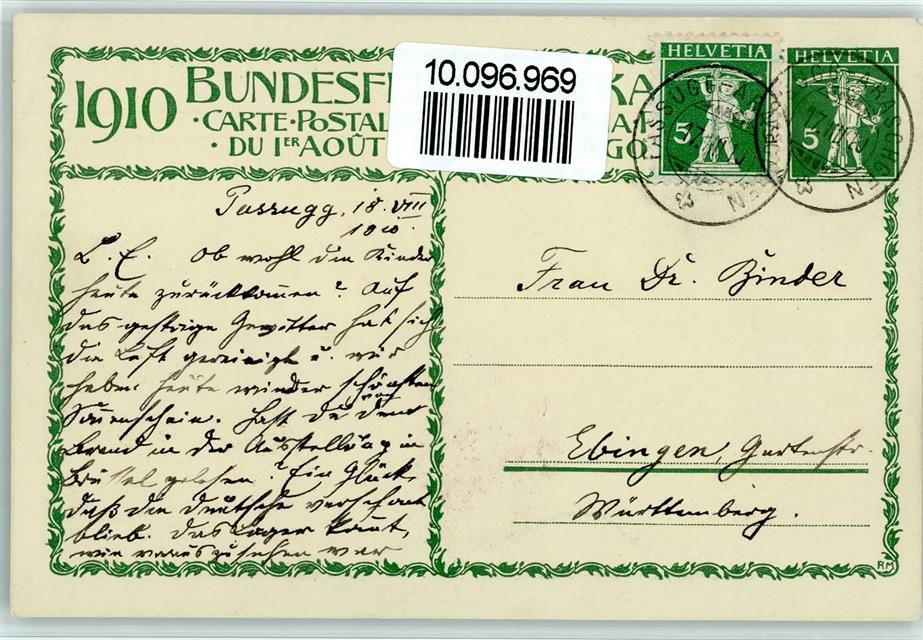 1910 BUNDESFE KA
10.096.969
·CARTE·POSTAL
· DU 1ER AOÛT GO
HELVETIA
5
HELVETIA
5
Passugg, 18. VIII
1910.
L. E. Ob wohl die Kinder
heute zurückkommen? Auf
das gestrige Gewitter hat sich
die Luft gereinigt u. wir
haben heute wieder schönsten
Sonnenschein. Hast du von dem
Brand in der Ausstellung in
Brüssel gelesen? Ein Glück,
daß die deutsche verschont
blieb. Das Lager kommt,
wie vorauszusehen war
Frau Dr. Binder
Ebingen, Gartenstr.
Württemberg.
RM